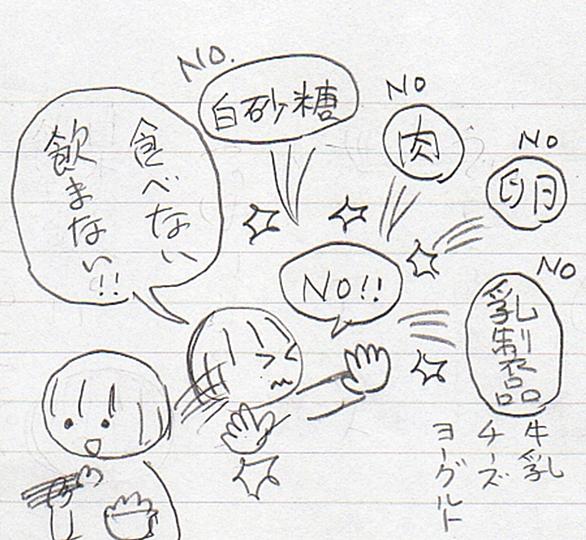 NO.
白砂糖
NO
肉
NO
卵
食べない
飲まない!!
NO!!
NO
乳製品
牛乳
チーズ
ヨーグルト